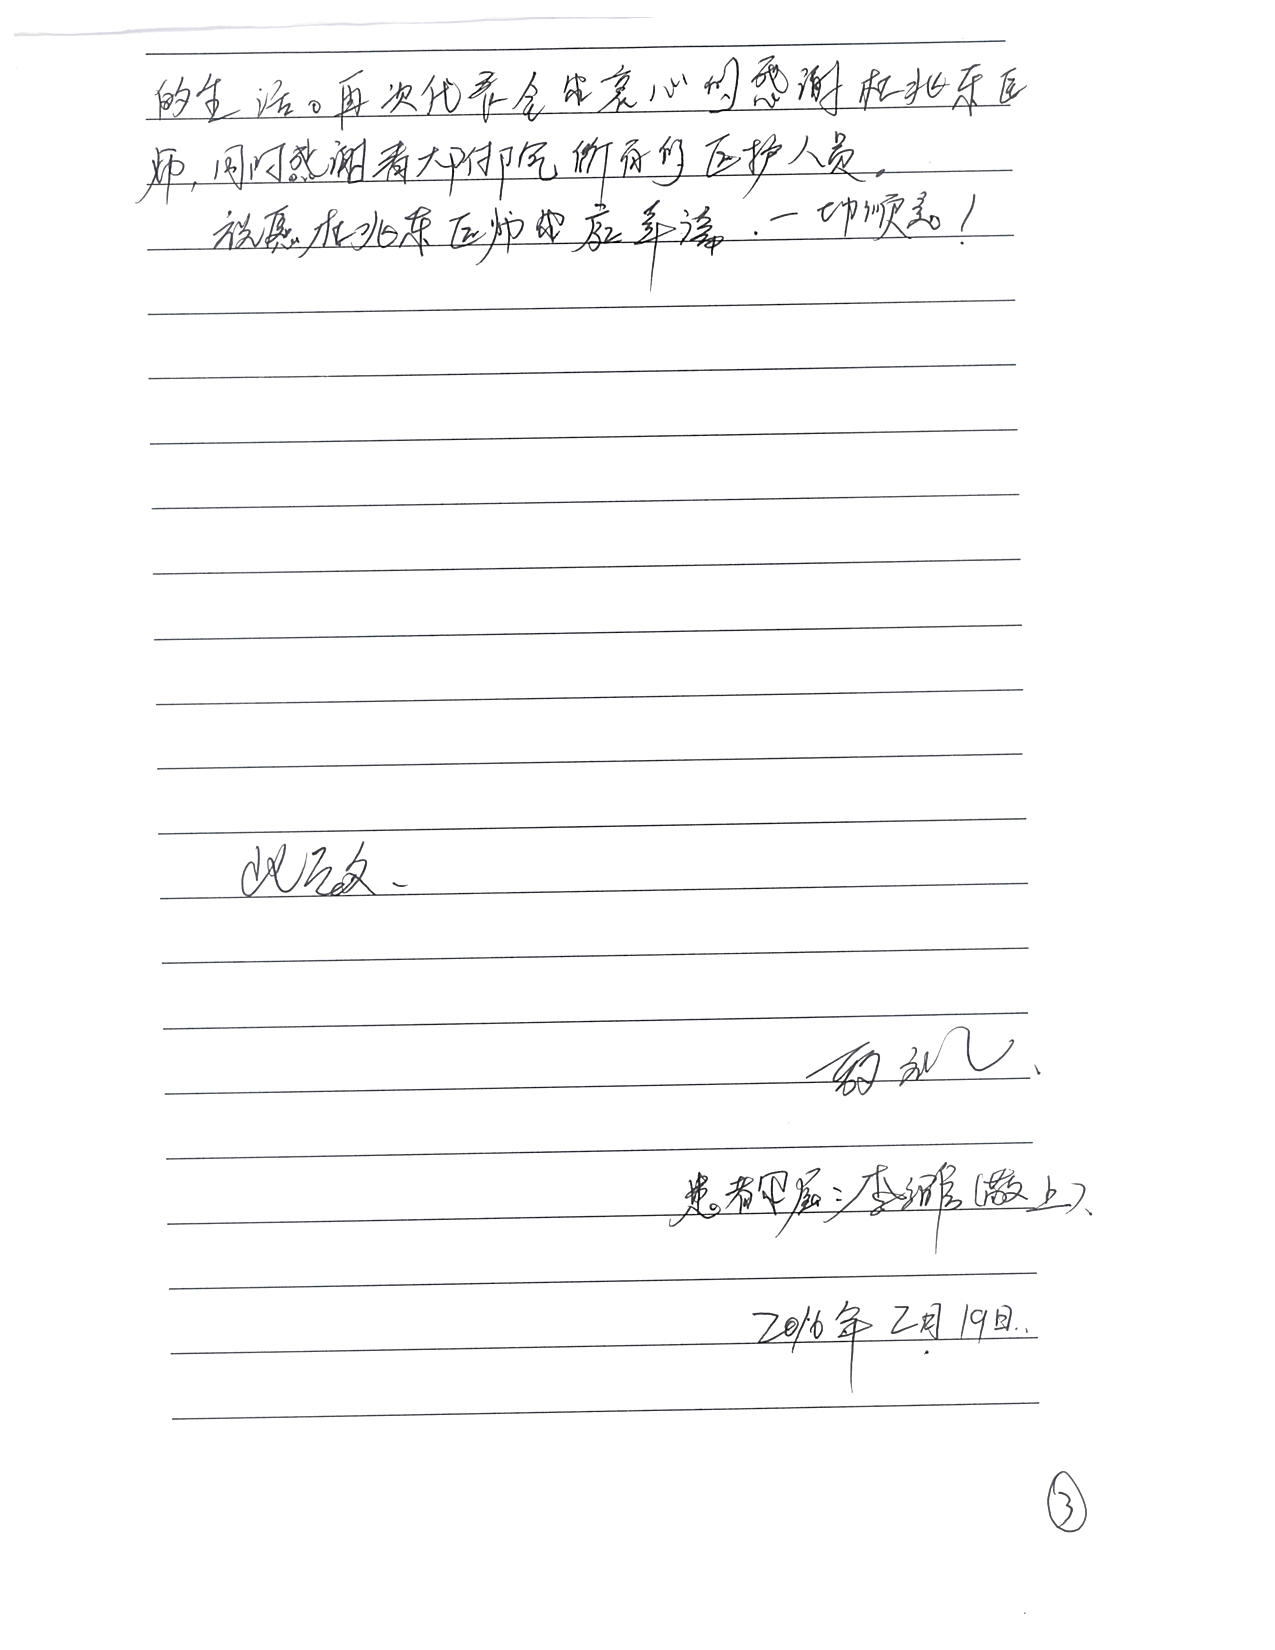 的生活。再次代表全家衷心的感谢杜兆东医
师,同时感谢青大附院所有的医护人员。
祝愿杜兆东医师健康幸福.一切顺意!
此致、
敬礼、
患者家属:李(敬上)、
2016年2月19日..
3